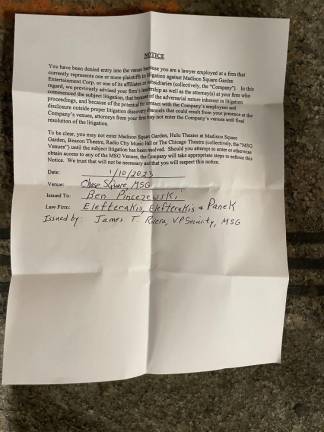 NOTICE
You have been denied entry into the venue because you are a lawyer employed at a firm that
currently represents one or more plaintiffs in litigation against Madison Square Garden
Entertainment Corp. or one of its affiliates or subsidiaries (collectively, the "Company"). In this
regard, we previously advised your firm's leadership as well as the attorney(s) at your firm who
commenced the subject litigation, that because of the adversarial nature inherent in litigation
proceedings, and because of the potential for contact with the Company's employees and
disclosure outside proper litigation discovery channels that could result from your presence at the
Company's venues, attorneys from your firm may not enter the Company's venues until final
resolution of the litigation.
To be clear, you may not enter Madison Square Garden, Hulu Theater at Madison Square
Garden, Beacon Theatre, Radio City Music Hall or The Chicago Theatre (collectively, the "MSG
Venues") until the subject litigation has been resolved. Should you attempt to enter or otherwise
obtain access to any of the MSG Venues, the Company will take appropriate steps to enforce this
Notice. We trust that will not be necessary and that you will respect this notice.
Date: 1/10/2023
Venue: Chase Square, MSG
Issued To: Ben Pinczewski
Law Firm: Elefterakis, Elefterakis + Panek
Issued by James T. VP Security, MSG